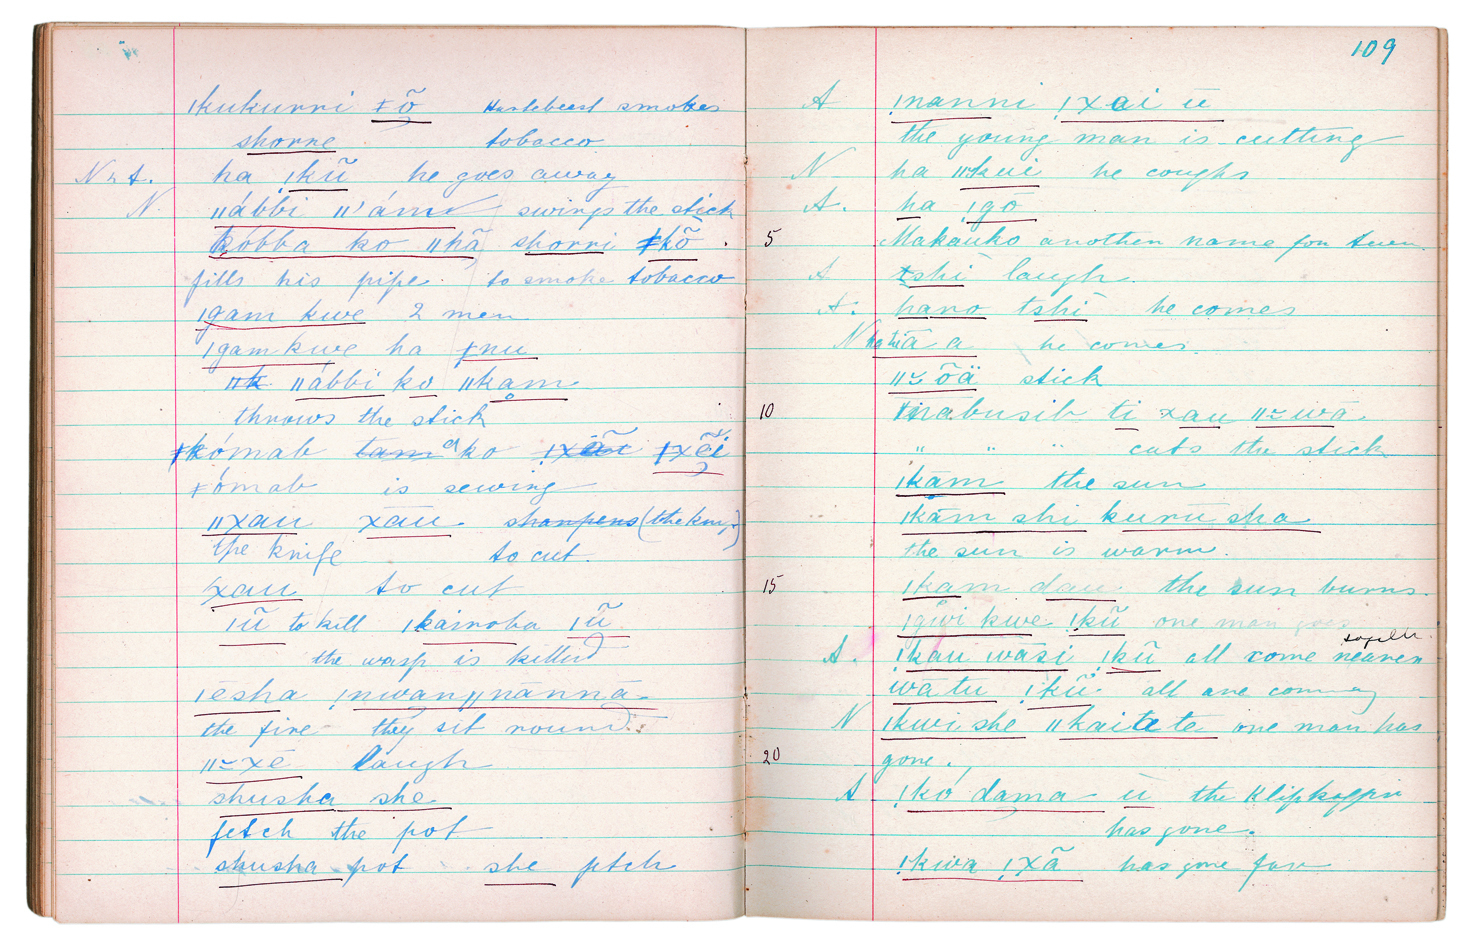 ǀkukurri ǂõ Hartebeest smokes
shorre tobacco
N & A. ha ǃkũ he goes away
N. ǁábbi ǁ'ám swings the stick
kóbba ko ǁhã shorri ǂkõ.
fills his pipe. to smoke tobacco
ǀgam kwe 2 men
ǀgam kwe ha ǂnu
ǁk ǁábbi ko ǁkam
throws the stick
ǂkómab tam a ko ǂxẽi
ǂómab is sewing
ǁxau xãu sharpens (the knife)
the knife to cut.
xau to cut
ǀũ to kill ǀkainoba ǀũ
the wasp is killed
ǀēsha ǃnwan ǁnānnā
the fire they sit round
ǁ≃xē laugh
shusha she
fetch the pot
shusha pot she fetch
109
A ǃnanni ǃxai ū
the young man is cutting
N ha ǁkui he coughs
A. ha ǃgō
5 Makauko another name for
A tshi laugh.
A. hano tshī he comes
N ha tiā a he comes.
ǁ≃õä stick
10 ti xau ǁ≃wā.
" " " cuts the stick
ǀkām the sun
ǀkām shi kurū sha
the sun is warm.
15 ǀkam dau the sun burns.
ǀgwi kwe ǃkũ one man goes
together.
A. ǃkau wāsi ǃkũ all come nearer
wātu ǃkũ all are coming
N ǀkwi she ǁkaitate one man has
20 gone.
A ǃkó dama ū the Klipkaffir
has gone.
ǃkwa ǃxã has gone far